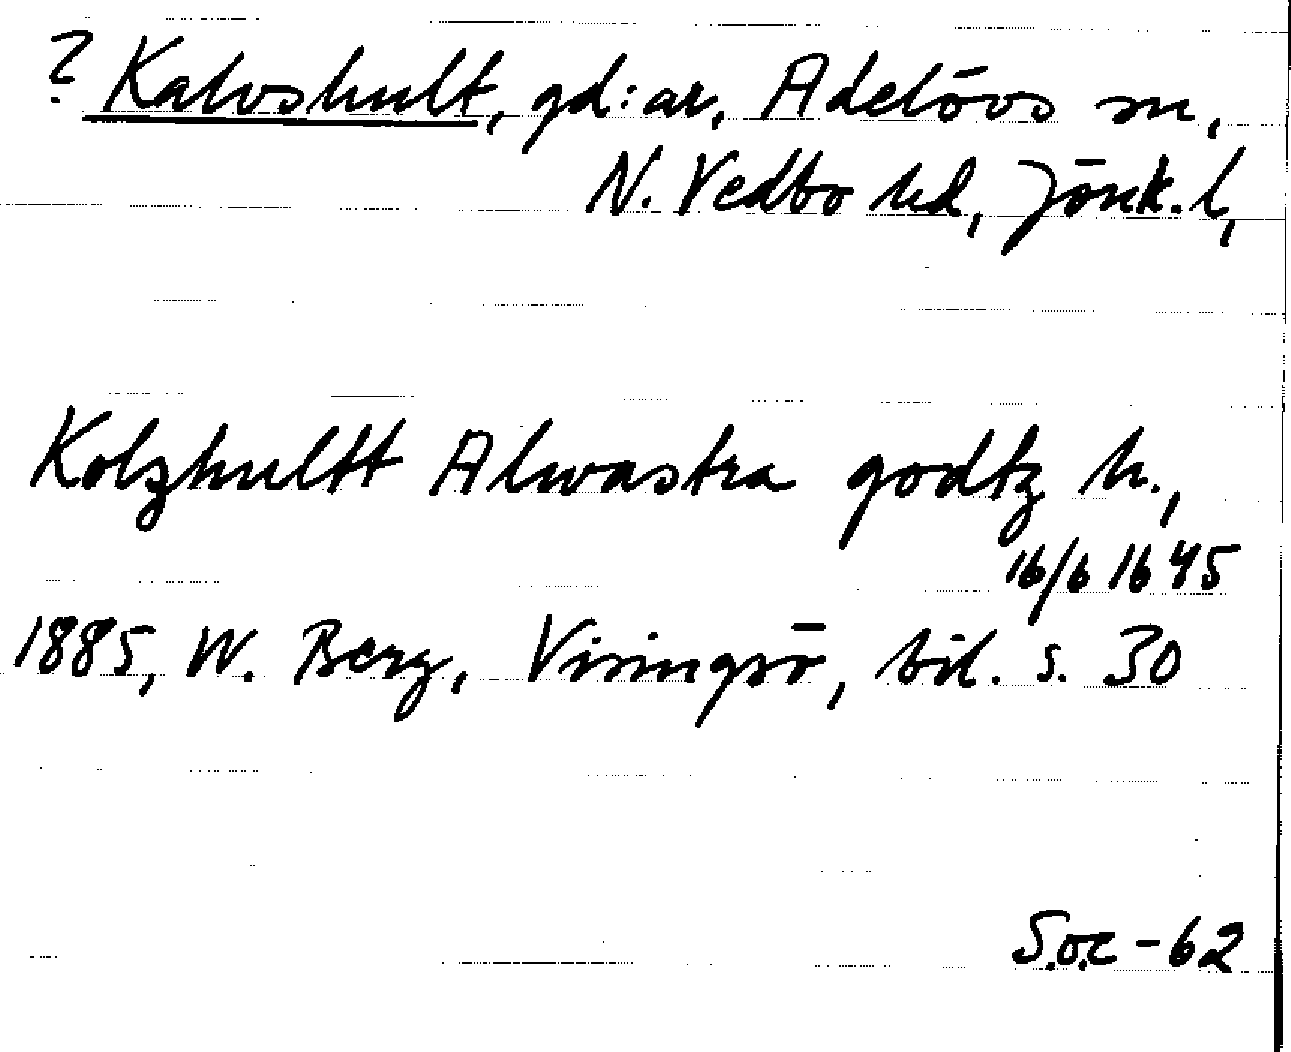 ? Kalvshult, gd:ar, Adelövs sn,
N. Vedbo hd, Jönk. l,
Kolzhultt Alwastra godtz h.,
16/6 1645
1885, W. Berg, Visingsö, bil. s. 30
S.o.c -62